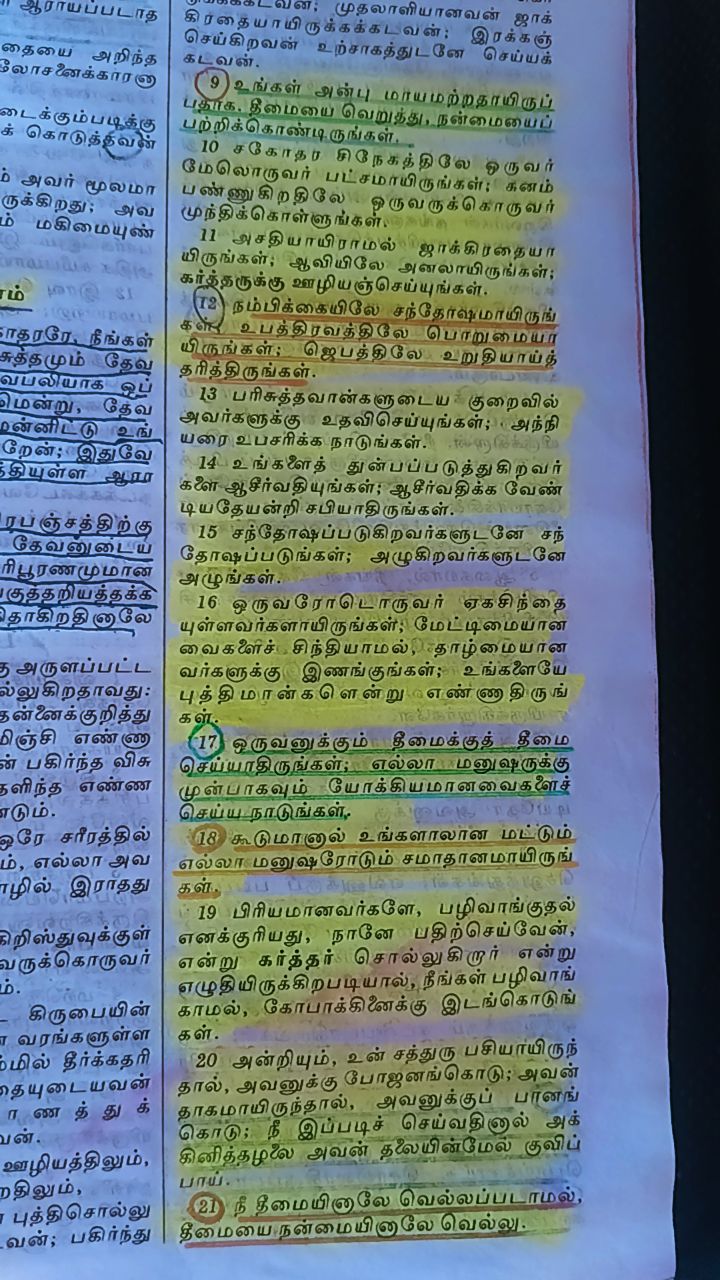 ஆராயப்படாத
தையை அறிந்த
லோசனைக்காரனா
டைக்கும்படிக்கு
கொடுத்தவன்
அவர் மூலமா
ருக்கிறது; அவ
மகிமையுண்
தரரே, நீங்கள்
சுத்தமும் தேவ
பலியாக ஒப்
மென்று, தேவ
முன்னிட்டு உங்
றேன்; இதுவே
தியுள்ள ஆரா
பிரபஞ்சத்திற்கு
தேவனுடைய
ரிபூரணமுமான
குத்தறியத்தக்க
தாகிறதினாலே
அருளப்பட்ட
ல்லுகிறதாவது:
தன்னைக்குறித்து
மிஞ்சி எண்ணா
பகிர்ந்த விசு
தளிந்த எண்ண
டும்.
ஒரே சரீரத்தில்
ம், எல்லா அவ
ழில் இராதது
கிறிஸ்துவுக்குள்
வருக்கொருவர்
ம்.
கிருபையின்
வரங்களுள்ள
ம்மில் தீர்க்கதரி
தையுடையவன்
ாணத்துக்
வன்.
ஊழியத்திலும்,
றதிலும்,
புத்திசொல்லு
வன்; பகிர்ந்து
முதலாளியானவன் ஜாக்
கிரதையாயிருக்கக்கடவன்; இரக்கஞ்
செய்கிறவன் உற்சாகத்துடனே செய்யக்
கடவன்.
9 உங்கள் அன்பு மாயமற்றதாயிருப்
பதாக, தீமையை வெறுத்து, நன்மையைப்
பற்றிக்கொண்டிருங்கள்.
10 சகோதர சிநேகத்திலே ஒருவர்
மேலொருவர் பட்சமாயிருங்கள்; கனம்
பண்ணுகிறதிலே ஒருவருக்கொருவர்
முந்திக்கொள்ளுங்கள்.
11 அசதியாயிராமல் ஜாக்கிரதையா
யிருங்கள்; ஆவியிலே அனலாயிருங்கள்;
கர்த்தருக்கு ஊழியஞ்செய்யுங்கள்.
12 நம்பிக்கையிலே சந்தோஷமாயிருங்
கள்; உபத்திரவத்திலே பொறுமையா
யிருங்கள்; ஜெபத்திலே உறுதியாய்த்
தரித்திருங்கள்.
13 பரிசுத்தவான்களுடைய குறைவில்
அவர்களுக்கு உதவிசெய்யுங்கள்; அந்நி
யரை உபசரிக்க நாடுங்கள்.
14 உங்களைத் துன்பப்படுத்துகிறவர்
களை ஆசீர்வதியுங்கள்; ஆசீர்வதிக்க வேண்
டியதேயன்றி சபியாதிருங்கள்.
15 சந்தோஷப்படுகிறவர்களுடனே சந்
தோஷப்படுங்கள்; அழுகிறவர்களுடனே
அழுங்கள்.
16 ஒருவரோடொருவர் ஏகசிந்தை
யுள்ளவர்களாயிருங்கள்; மேட்டிமையான
வைகளைச் சிந்தியாமல், தாழ்மையான
வர்களுக்கு இணங்குங்கள்; உங்களையே
புத்திமான்களென்று எண்ணாதிருங்
கள்.
17 ஒருவனுக்கும் தீமைக்குத் தீமை
செய்யாதிருங்கள்; எல்லா மனுஷருக்கு
முன்பாகவும் யோக்கியமானவைகளைச்
செய்ய நாடுங்கள்.
18 கூடுமானால் உங்களாலான மட்டும்
எல்லா மனுஷரோடும் சமாதானமாயிருங்
கள்.
19 பிரியமானவர்களே, பழிவாங்குதல்
எனக்குரியது, நானே பதிற்செய்வேன்,
என்று கர்த்தர் சொல்லுகிறார் என்று
எழுதியிருக்கிறபடியால், நீங்கள் பழிவாங்
காமல், கோபாக்கினைக்கு இடங்கொடுங்
கள்.
20 அன்றியும், உன் சத்துரு பசியாயிருந்
தால், அவனுக்கு போஜனங்கொடு; அவன்
தாகமாயிருந்தால், அவனுக்குப் பானங்
கொடு; நீ இப்படிச் செய்வதினால் அக்
கினித்தழலை அவன் தலையின்மேல் குவிப்
பாய்.
21 நீ தீமையினாலே வெல்லப்படாமல்,
தீமையை நன்மையினாலே வெல்லு.